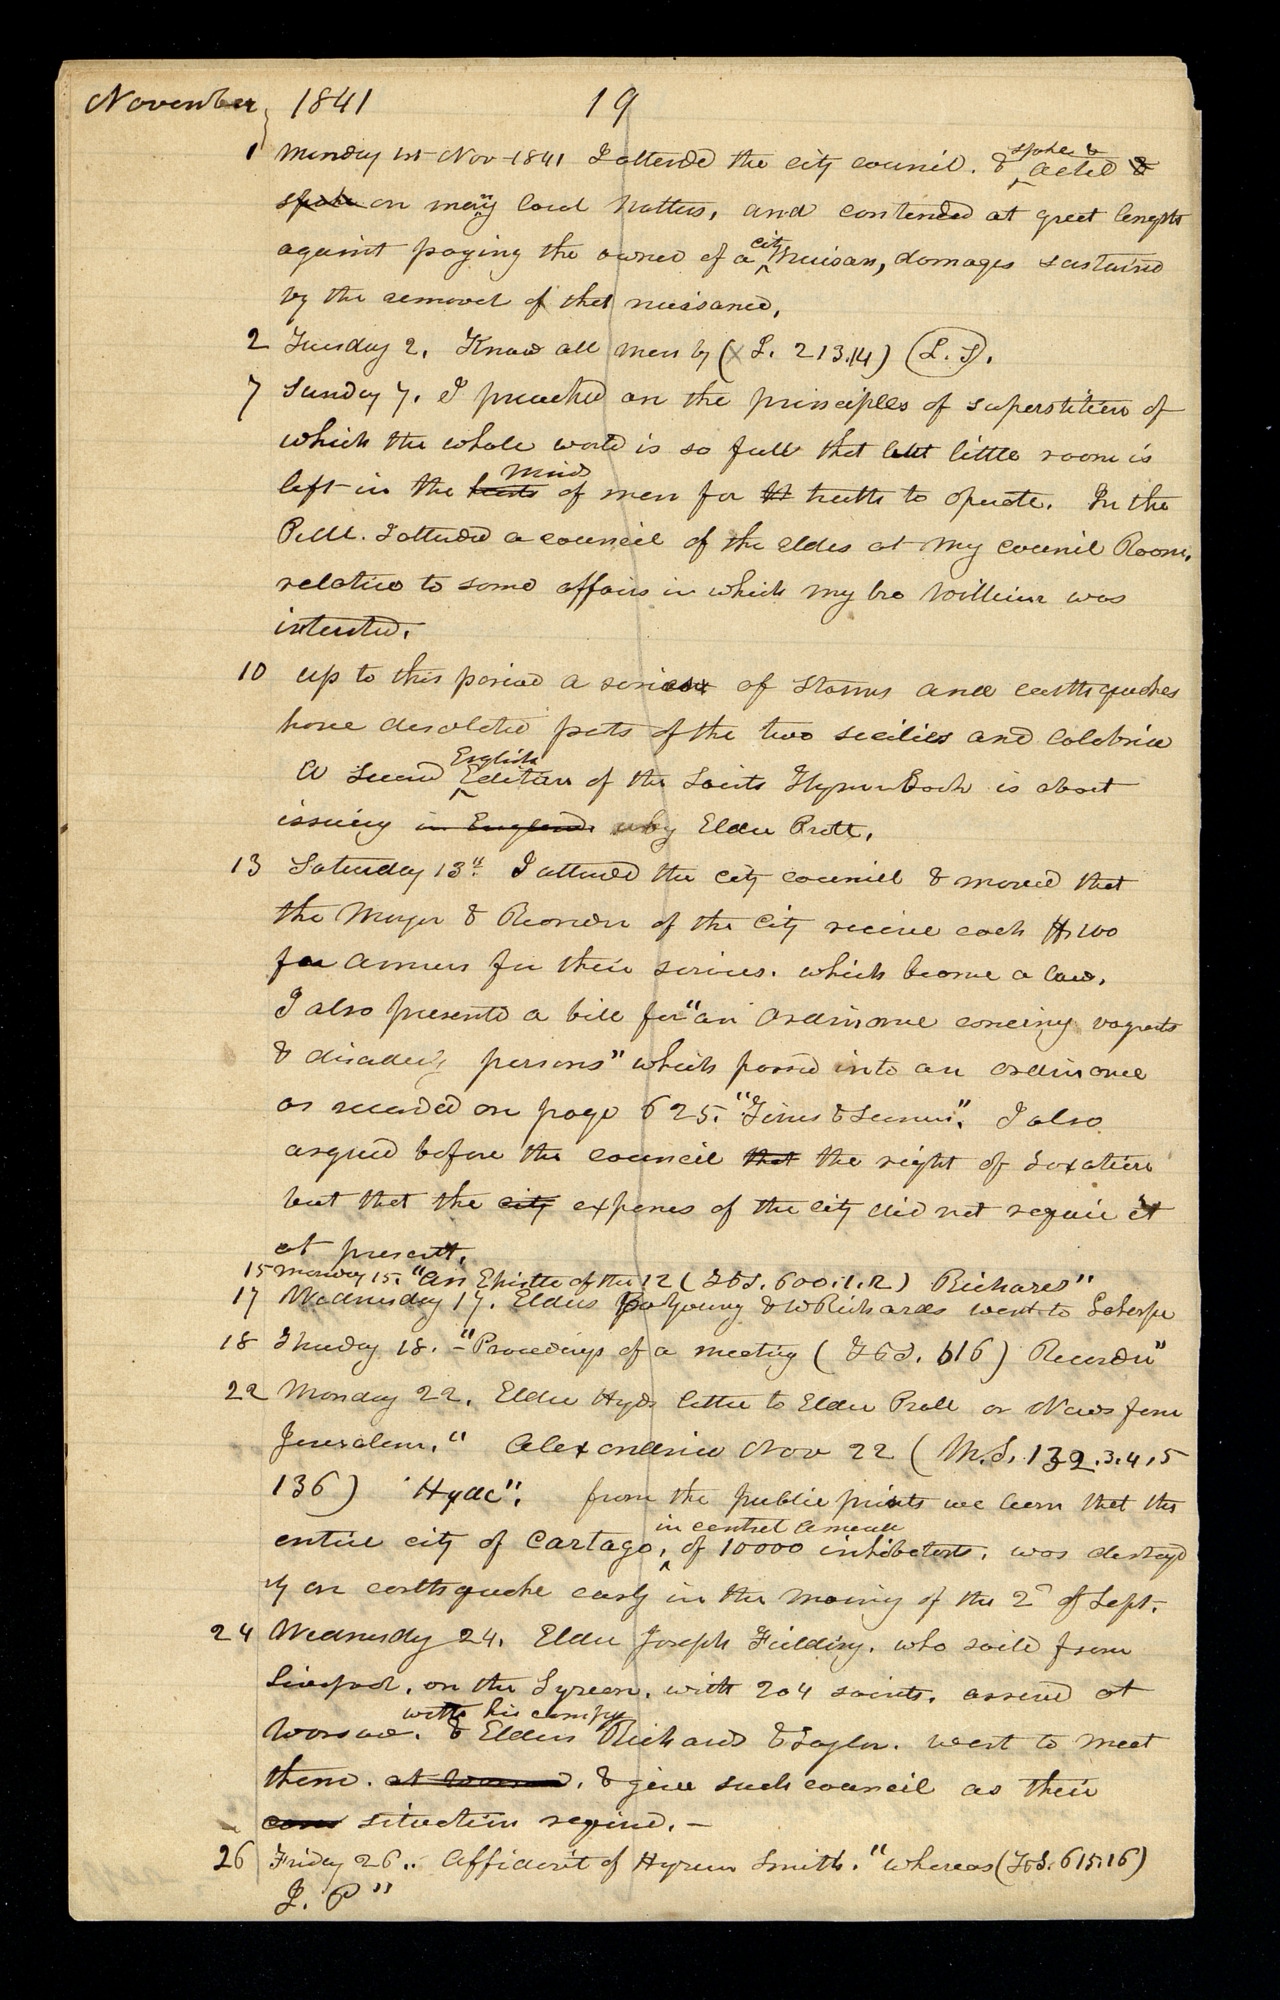 November 1841 19
1 Monday 1st Nov-1841 I attended the city council. & spoke & acted &
spoke on many local matters, and contended at great length
against paying the owner of a city nuisan, damages sustained
by the removal of that nuisance,
2 Tuesday 2. Know all men by (X L. 213.14) (L. S).
7 Sunday 7. I preached on the principles of superstition of
which the whole world is so full that but little room is
left in the hearts mind of men for tt truth to operate. In the
P.M. I attended a council of the elders at my council Room,
relative to some affairs in which my bro William was
intersted.
10 up to this period a series of storms and earthquakes
have desolated parts of the two sicilies and Calabria
A second English Edition of the Saints Hymn Book is about
issuing in England. by Elder Pratt,
13 Saturday 13th. I attend the city council & moved that
the Mayor & Recorder of the City recieve each $100
per annum for their services. which became a law.
I also presented a bill for "an Ordinance concering vagrants
& disadely persons" which passed into an ordinance
as recorded on page 625. "Times & Seasons". I also
argued before the council that the right of Taxation
but that the city expenes of the city did not require it
at present,
15 monday 15. "An Epistle of the 12 (T&S. 600.1.2) Richards"
17 Wednesday 17. Elders B Young & W Richards went to Laharpe
18 Thursday 18. - "Proceedings of a meeting (T&S. 616) Recorder"
22 Monday 22. Elder Hyds letter to Elder Pratt or News from
Jerusalem," Alexandria Nov 22 (M.S. 132.3.4.5
136) "Hyde". from the public prints we learn that the
entire city of Cartago, in central America of 10000 inhibetants, was destroyd
by an earthquake early in the morning of the 2d of Sept.
24 Wednesday 24. Elder Joseph Fielding. who saild from
Liverpool. on the Tyrean. with 204 saints. arrived at
Warsaw. with his compy & Elders Richards & Taylor. went to meet
them. at Warsaw. & give such council as their
cours situation required. -
26 Friday 26.. Affidavit of Hyrum Smith. "Whereas (T&S. 615.16)
J. P"